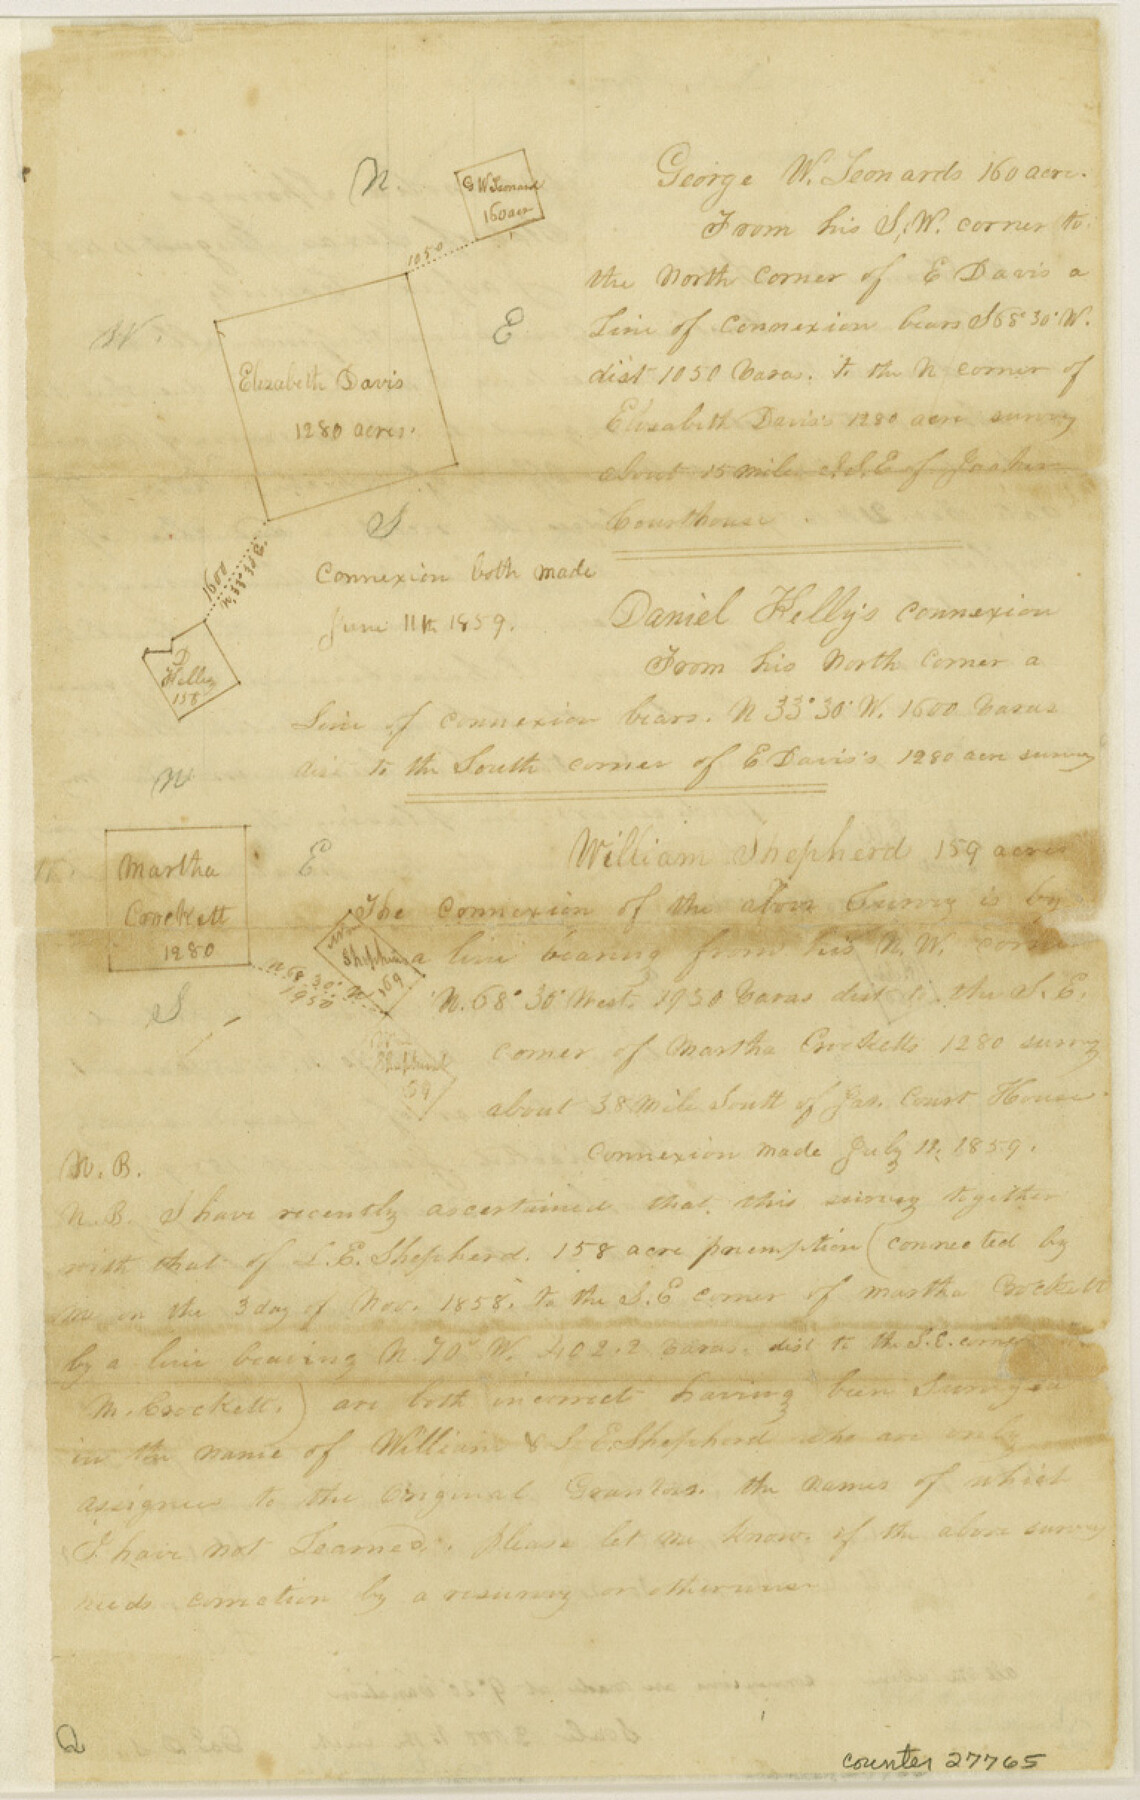 N.
G W Leonard
160 acr
1050
W.
E
Elizabeth Davis
1280 acres.
S
1600
D
Kelly
158
George W. Leonards 160 acre.
From his S.W. corner to
the North corner of E Davis a
Line of Connexion bears S 68° 30' W.
dist 1050 varas. to the N corner of
Elizabeth Davis's 1280 acre survey
about 15 mile S.S.E of Jasper
Courthouse.
Connexion both made
June 11th 1859.
Daniel Kelly's connexion
From his North Corner a
Line of connexion bears. N 33° 30' W. 1600 varas
dis to the South corner of E Davis's 1280 acre survey
N
W.
Martha
Crockett
1280
E
S
N 68° 30' W
1950
Wm
Shepherd
169
Shepherd
59
William Shepherd 159 acres
The connexion of the above Survey is by
a line bearing from his N.W. corner
N. 68° 30' West. 1950 varas dist to the S.E.
corner of Martha Crocketts 1280 survey
about 38 mile South of Jas. Court House
Connexion made July 11, 1859.
N.B.
N.B. I have recently ascertained that this survey together
with that of L.E. Shepherd. 158 acre premption (connected by
me on the 3 day of Nov. 1858. to the S.E corner of Martha Crockett
by a line bearing N. 70° W. 402.2 varas. dist to the S.E. corner
M. Crockett.) are both incorrect having been Surveyed
in the name of William & L E. Shepherd who are only
assignees to the Original Grantees. the names of which
I have not Learned. please let me know. if the above survey
needs correction by a resurvey or otherwise
counter 27765